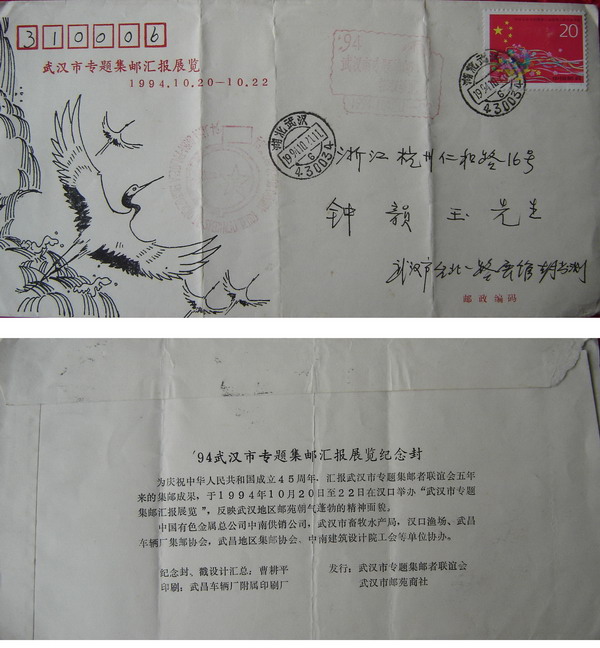 310006
武汉市专题集邮汇报展览
1994.10.20-10.22
'94
武汉市专题集邮
20
湖北武汉
1994.10.21.11
6
430034
湖北武汉
1994.10.21.11
6
430034
浙江杭州仁和路16号
钟韻玉先生
武汉市台北一路
邮政编码
'94武汉市专题集邮汇报展览纪念封
为庆祝中华人民共和国成立45周年，汇报武汉市专题集邮者联谊会五年
来的集邮成果，于1994年10月20日至22日在汉口举办“武汉市专题
集邮汇报展览”，反映武汉地区邮苑朝气蓬勃的精神面貌。
中国有色金属总公司中南供销公司，武汉市畜牧水产局，汉口渔场、武昌
车辆厂集邮协会，武昌地区集邮协会、中南建筑设计院工会等单位协办。
纪念封、戳设计汇总：曹耕平
发行：武汉市专题集邮者联谊会
印刷：武昌车辆厂附属印刷厂
武汉市邮苑商社